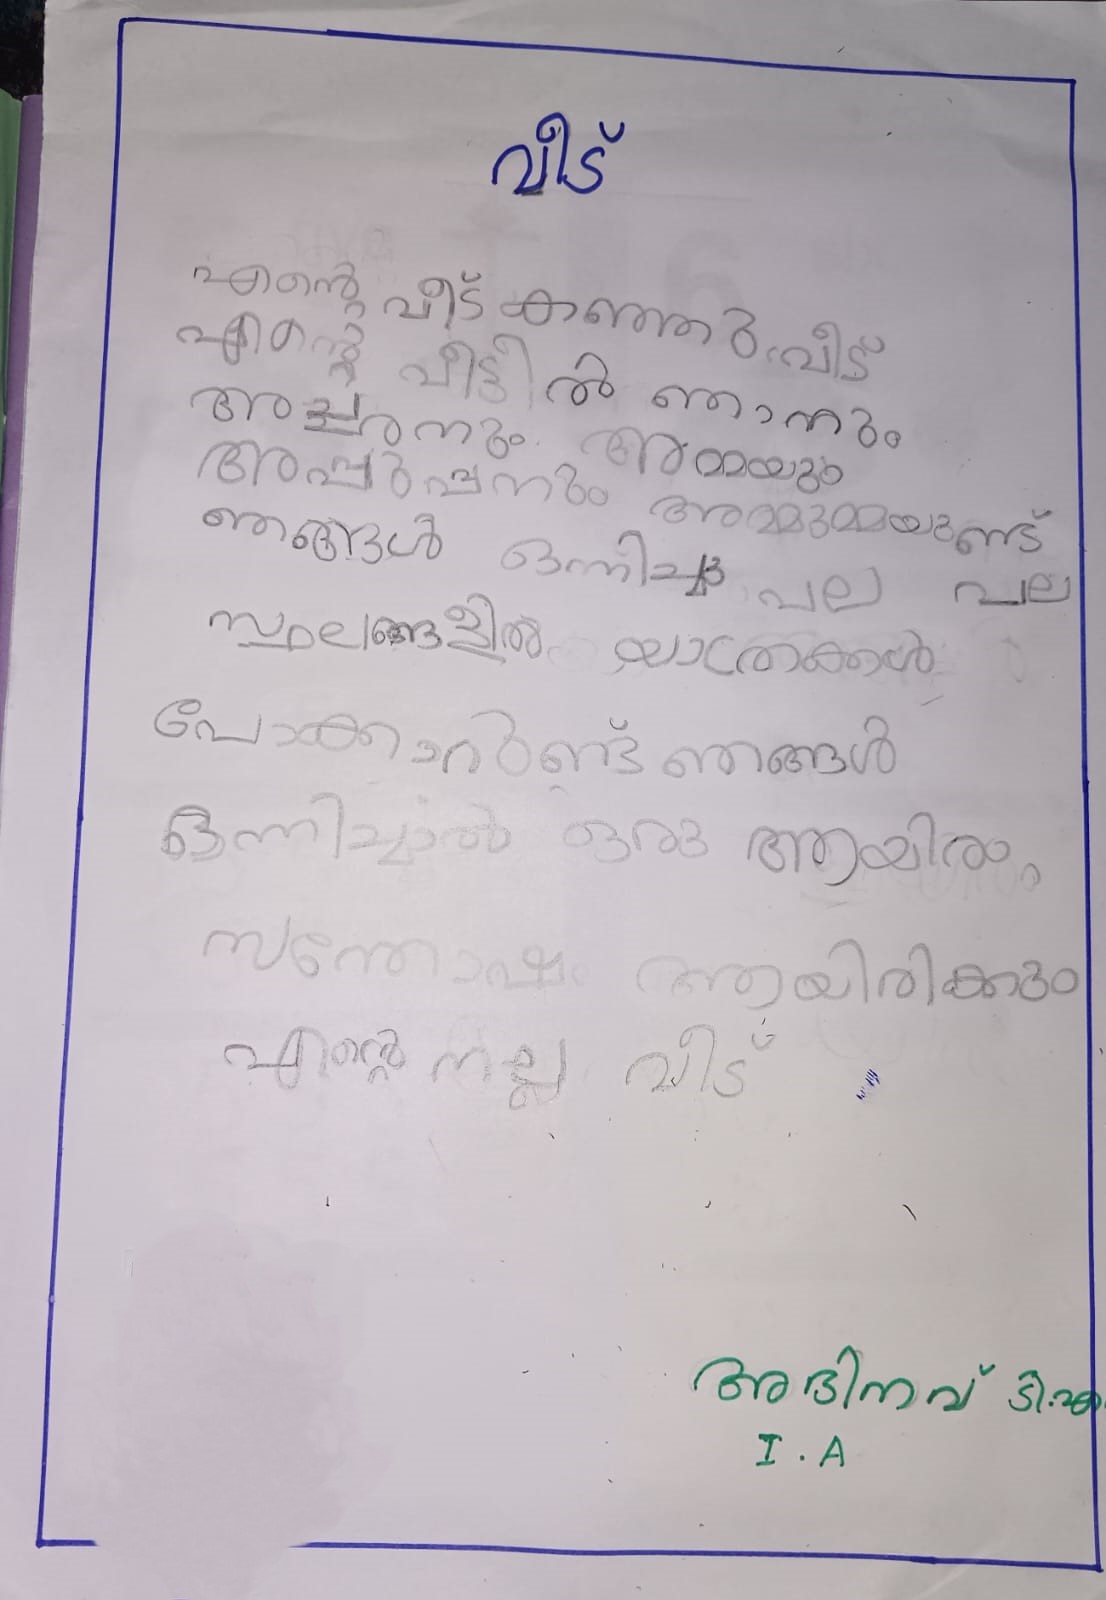 വീട്
എന്റെ വീട് കുഞ്ഞു വീട്
എന്റെ വീട്ടിൽ ഞാനും
അച്ചനും അമ്മയും
അപ്പുപ്പനും അമ്മുമ്മയുണ്ട്
ഞങ്ങൾ ഒന്നിച്ചു പല പല
സ്ഥലങ്ങളിൽ യാത്രക്കൾ
പോക്കാറുണ്ട് ഞങ്ങൾ
ഒന്നിച്ചാൽ ഒരു ആയിരം
സന്തോഷം ആയിരിക്കും
എന്റെ നല്ല വീട്
അഭിനവ് ടി.എ
I . A